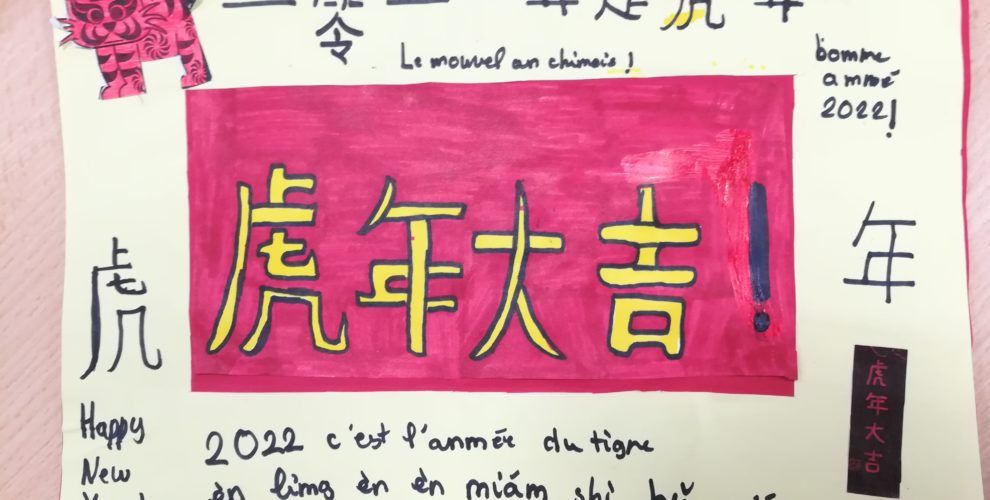 年是虎年
Le nouvel an chinois !
bonne
année
2022!
虎年大吉!
虎
年
虎年大吉
Happy
New
2022 c'est l'année du tigre
èr líng èr èr nián shì hǔ